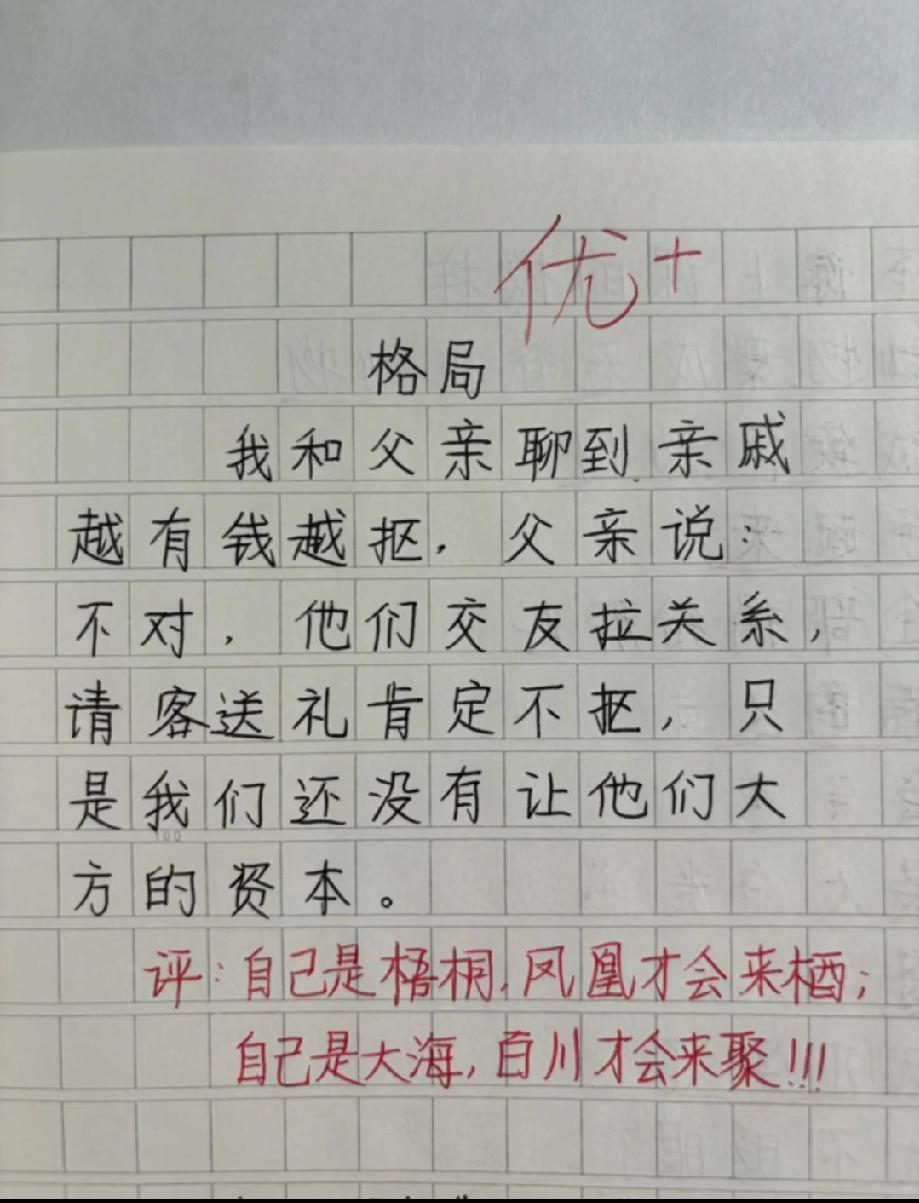 优+
格局
我和父亲聊到亲戚
越有钱越抠，父亲说：
不对，他们交友拉关系，
请客送礼肯定不抠，只
是我们还没有让他们大
方的资本。
评：自己是梧桐，凤凰才会来栖；
自己是大海，百川才会来聚!!!